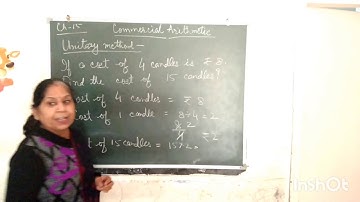 Ch-15 Commercial Arithmetic
Unitary method —
If a cost of 4 candles is ₹ 8.
Find the cost of 15 candles?
cost of 4 candles = ₹ 8
cost of 1 candle = 8÷4 = 2
8 2
4 ₹ 2
t of 15 candles = 15×2
Made with
InShOt